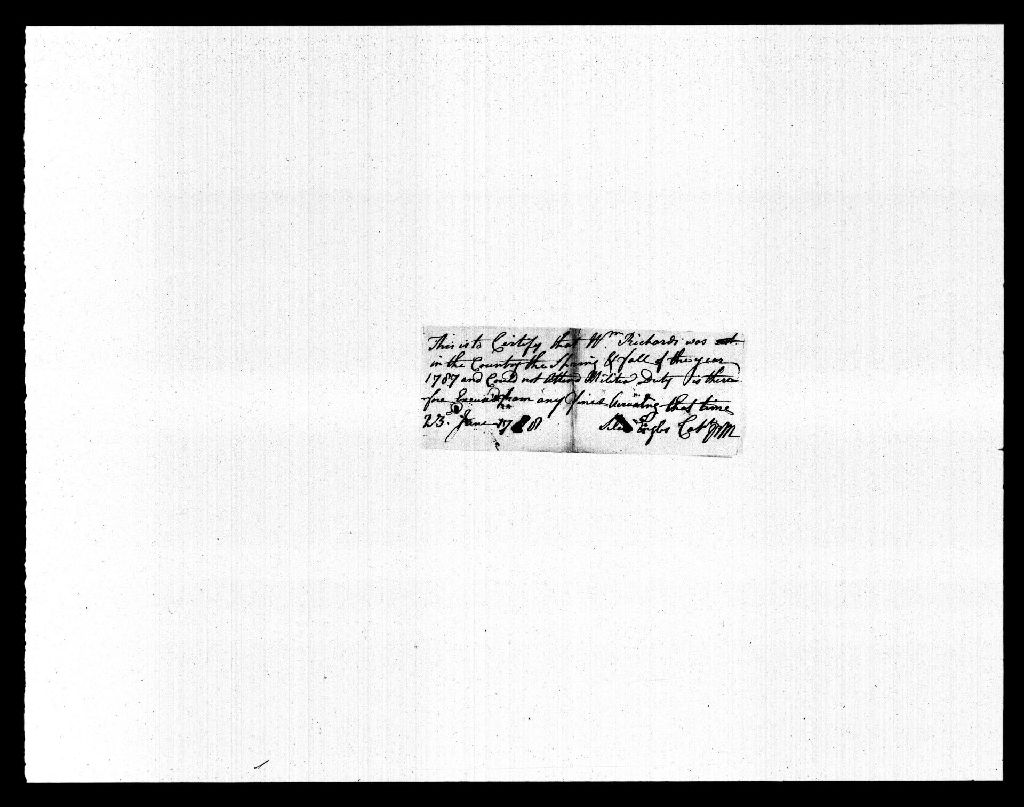 This is to Certify that Wm Richards was
in the Country the Spring & fall of the year
1787 and Could not Attend Militia Duty is there
fore Excused from any fines Arising that time
23d June 1788 Capt PM